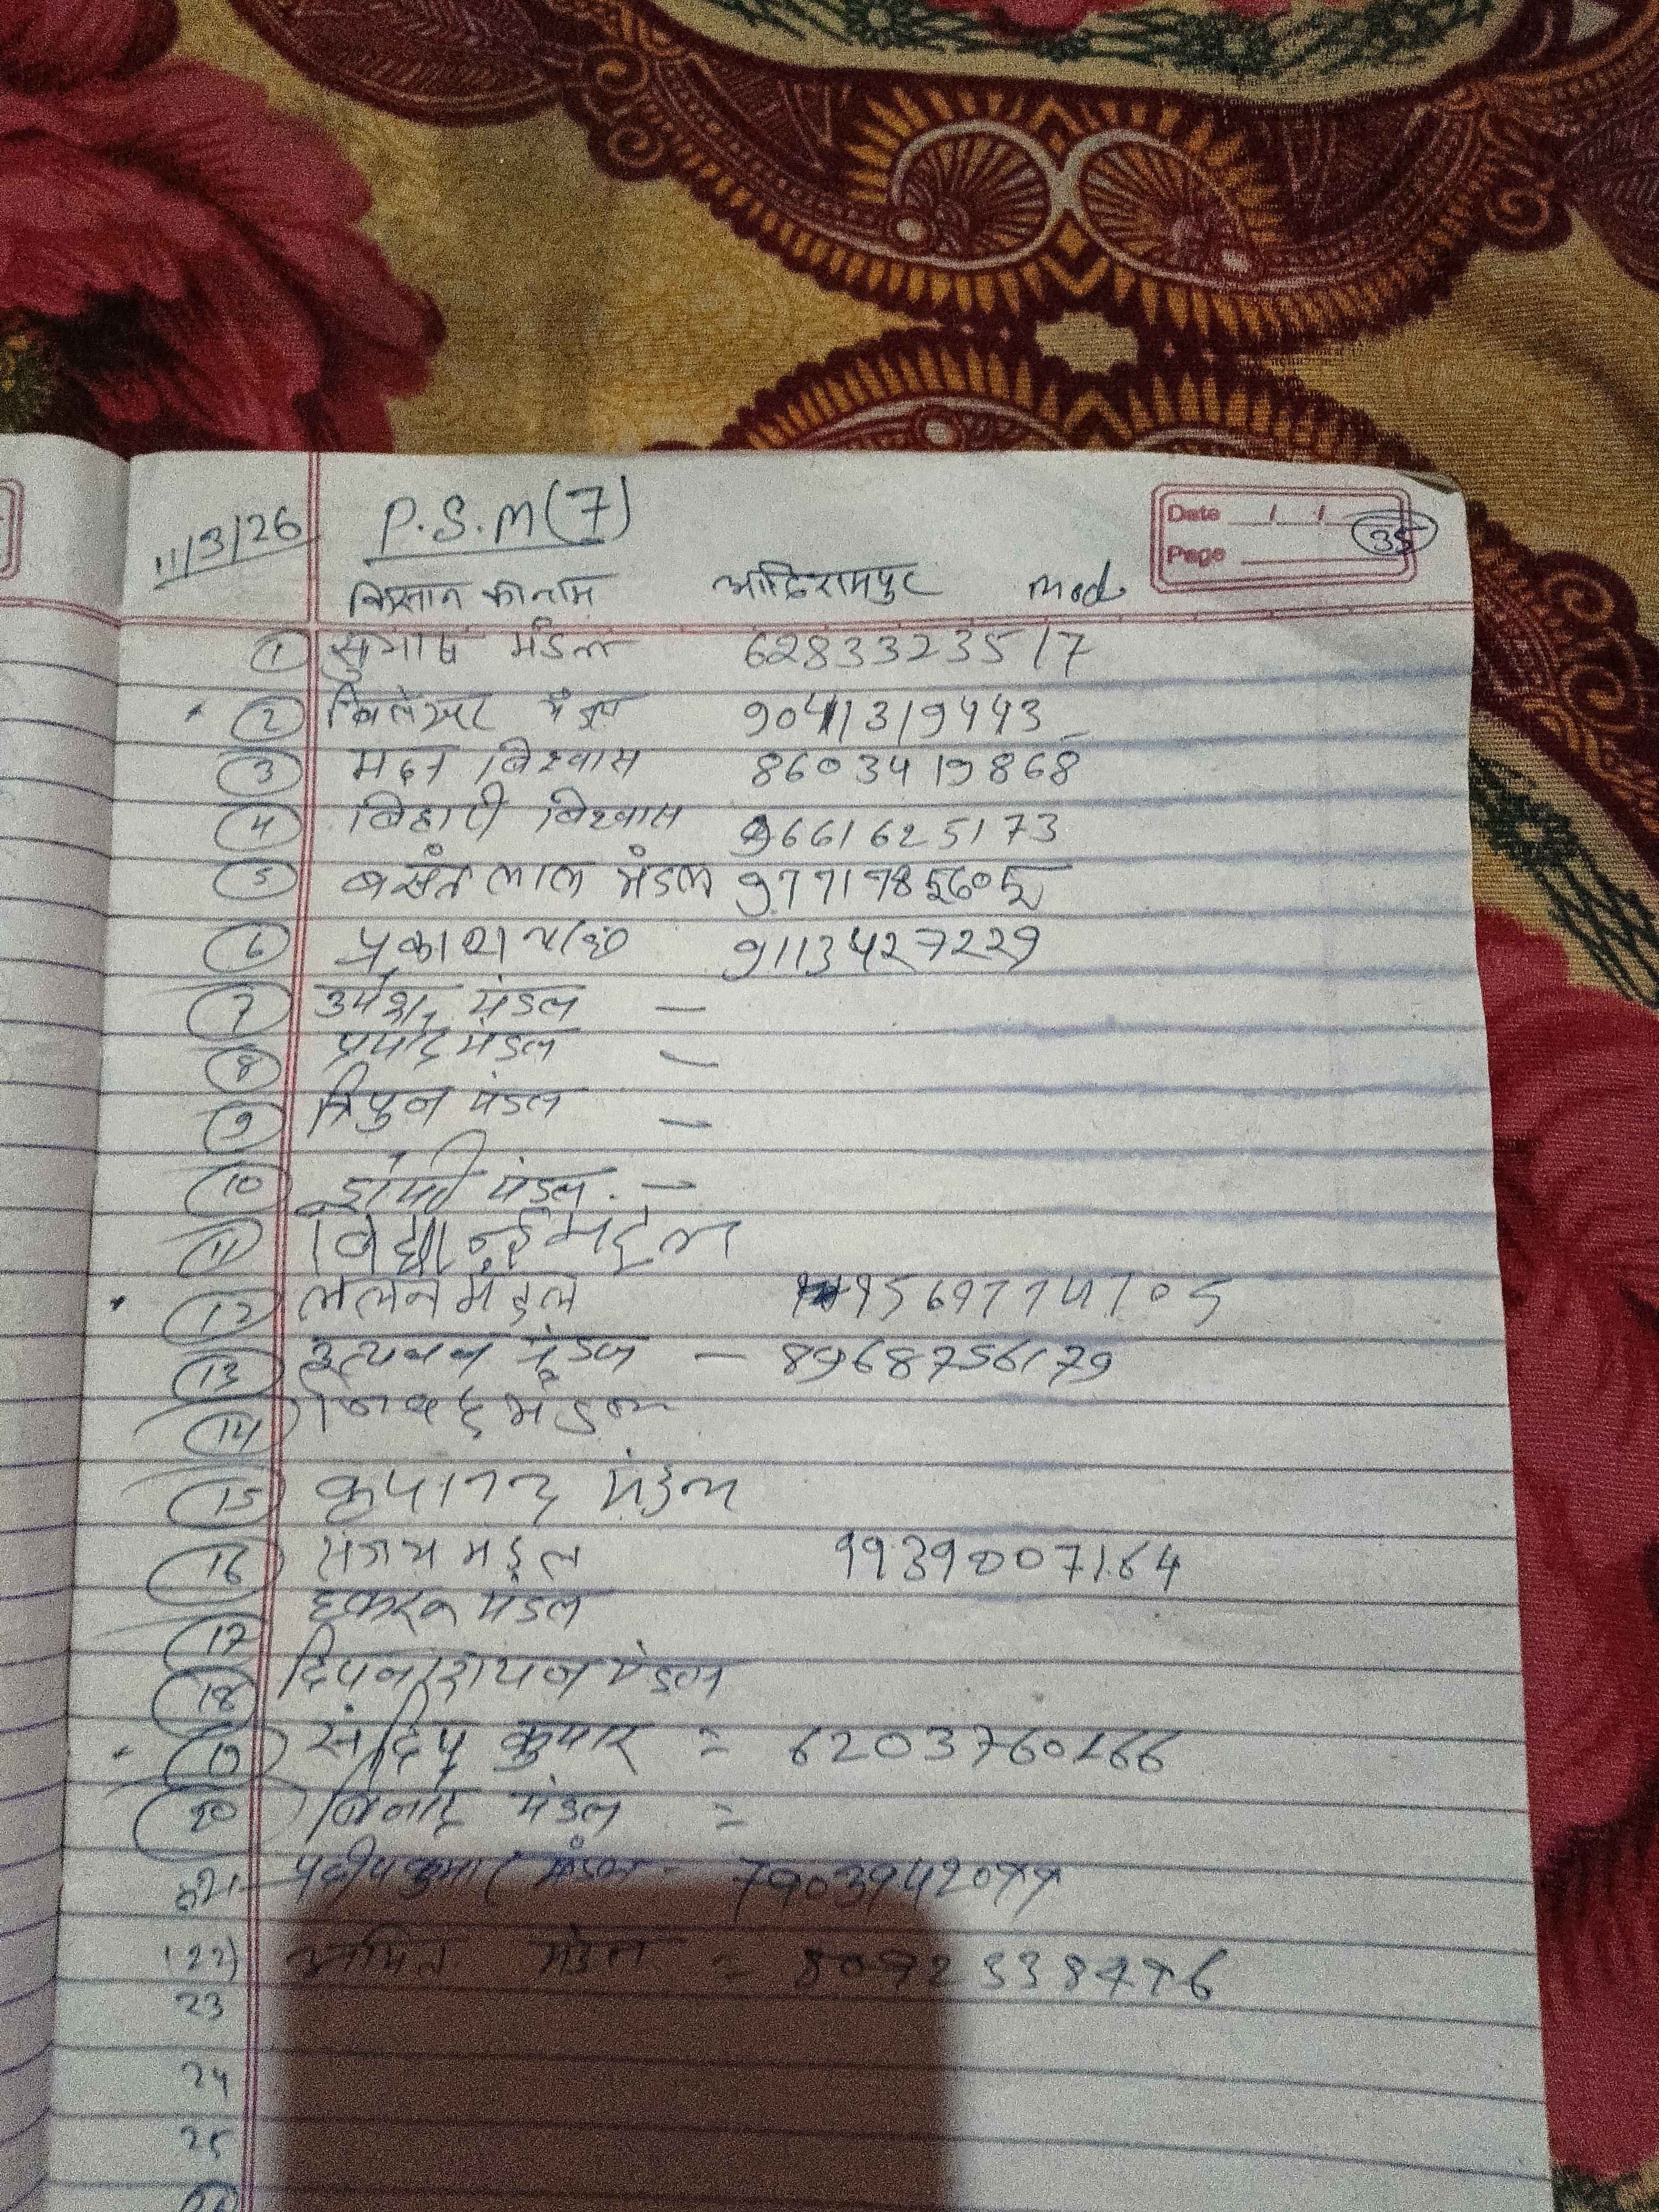 11/3/26 P.S.M(7)
Date
Page
35
किसान का नाम आदिरामपुर mod
1 सुभाष मंडल 6283323517
2 मंडल 9041319443
3 मदन विश्वास 8603419868
4 बिहारी विश्वास 9661625173
5 बसंत लाल मंडल 9771985605
6 प्रकाश 9113427229
7 उमेश मंडल —
8 प्रमोद मंडल —
9 मंडल —
10 मंडल. —
11
12 ललन मंडल 9569774705
13 मंडल — 8968756179
14 मंडल
15 कृपानन्द मंडल
16 संजय मंडल 9939007164
17 मंडल
18 दिपनारायण मंडल
19 संदिप कुमार = 6203760166
20 बिनोद मंडल =
21 प्रदीप कुमार मंडल -
(22) अमित मंडल =
23
24
25
26